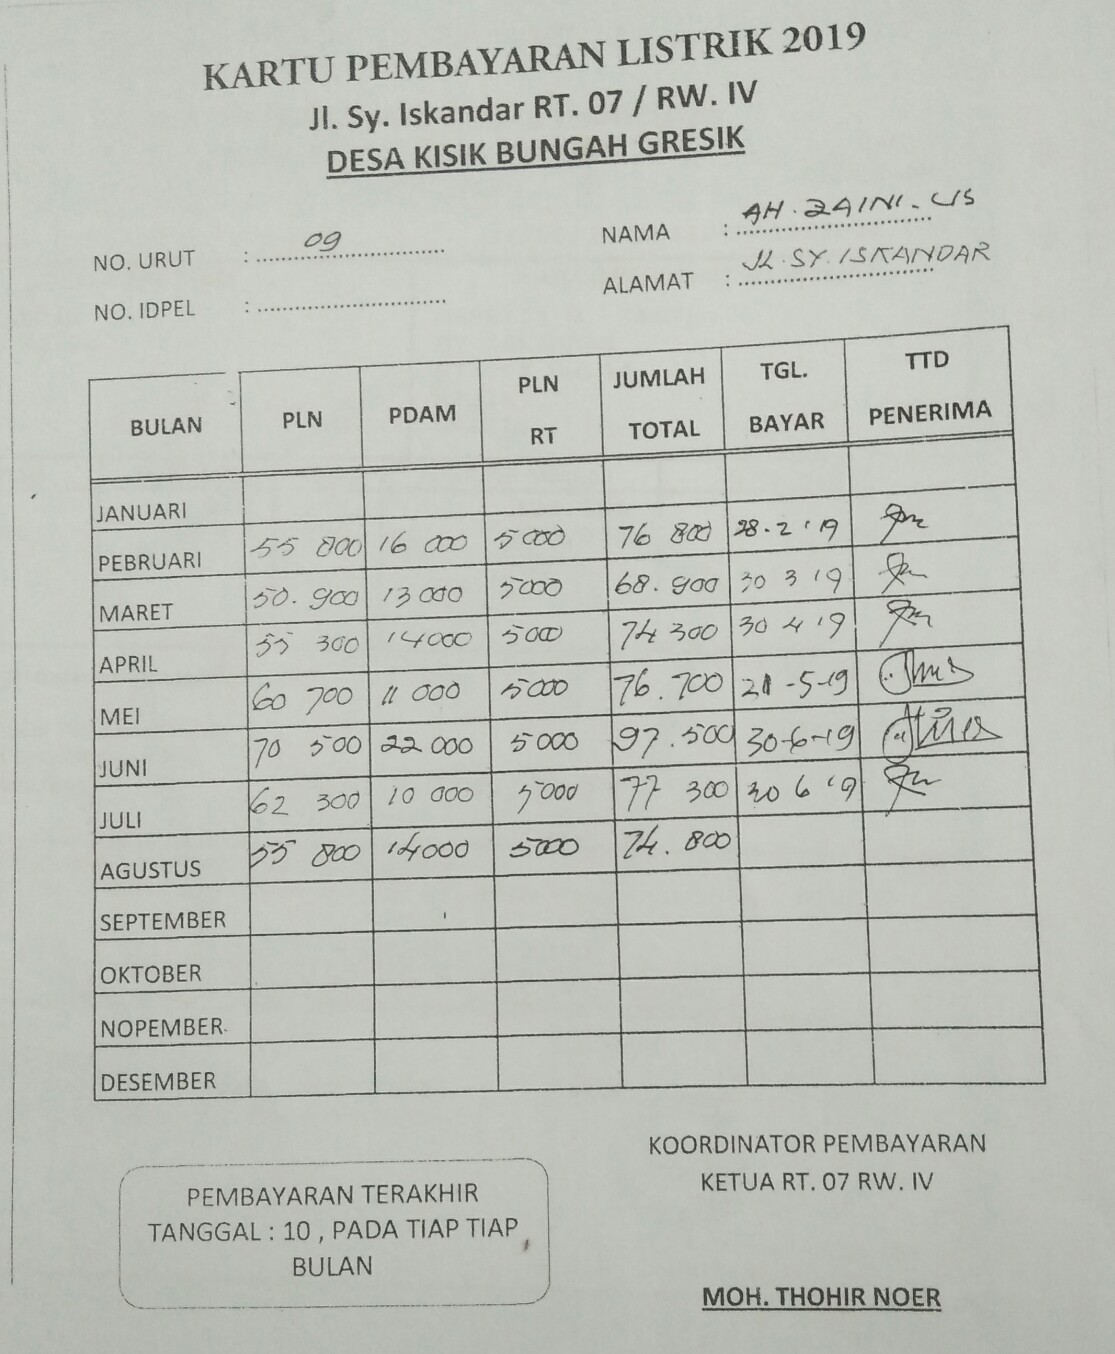 KARTU PEMBAYARAN LISTRIK 2019
Jl. Sy. Iskandar RT. 07 / RW. IV
DESA KISIK BUNGAH GRESIK
NO. URUT : 09
NAMA : AH. ZAINI. US
NO. IDPEL :
ALAMAT : JL. SY. ISKANDAR
BULAN PLN PDAM PLN RT JUMLAH TOTAL TGL. BAYAR TTD PENERIMA
JANUARI
PEBRUARI 55 800 16 000 5000 76 800 28-2 '19
MARET 50.900 13000 5000 68.900 30 3 '19
APRIL 55 300 14000 5000 74 300 30 4 '19
MEI 60 700 11 000 5000 76.700 21-5-19
JUNI 70 500 22 000 5 000 97.500 30-6-19
JULI 62 300 10 000 5000 77 300 30 6 '19
AGUSTUS 55 800 14000 5000 74.800
SEPTEMBER
OKTOBER
NOPEMBER
DESEMBER
KOORDINATOR PEMBAYARAN
KETUA RT. 07 RW. IV
PEMBAYARAN TERAKHIR
TANGGAL : 10 , PADA TIAP TIAP
BULAN
MOH. THOHIR NOER